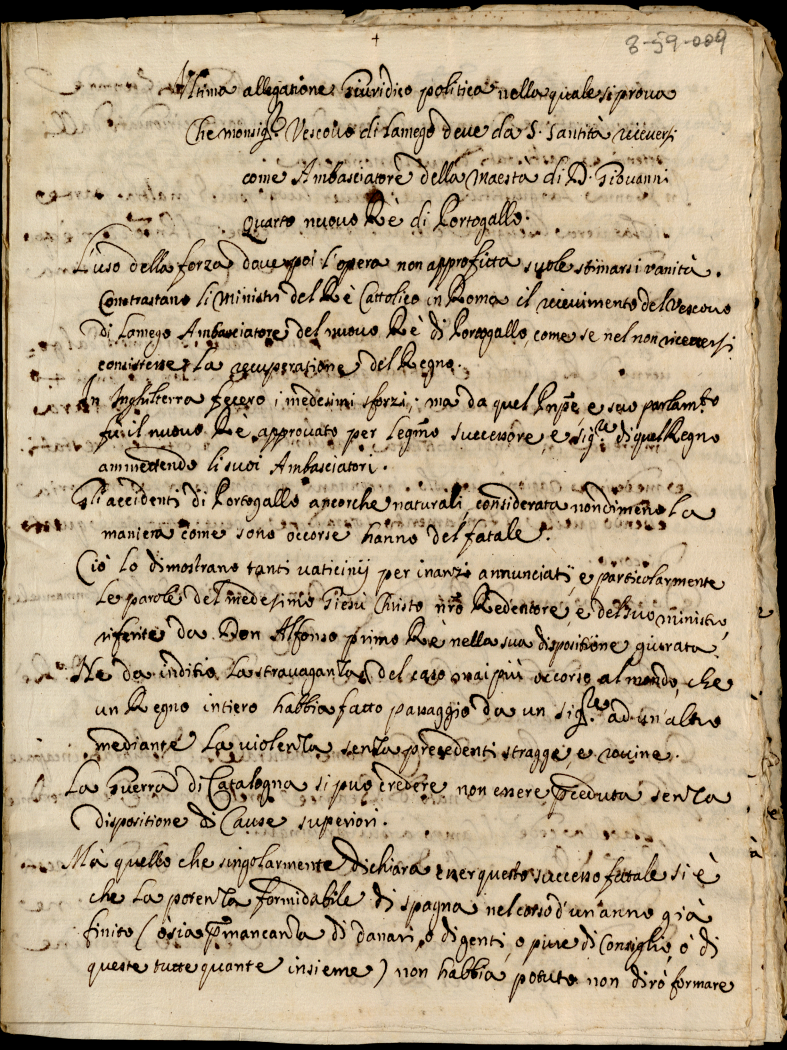 +
8-59-009
Vltima allegatione Giuridico politica nella quale si prova
Che monsig.r Vescovo di Lamego deve da S. Santità riceversi
come Ambasciatore della Maestà di D. Giovanni
Quarto nuovo Rè di Portogallo.
L'uso della forza dove poi l'opera non approfitta suole stimarsi vanità.
Contrastano li Ministri del Rè Cattolico in Roma il ricevimento del Vescovo
di Lamego Ambasciatore del nuovo Rè di Portogallo, come se nel non riceversi
consistesse la recuperatione del Regno.
In Inghilterra fecero i medesimi sforzi, ma da quel Prn̄pe, e suo parlam.to
fù il nuovo Rè approvato per legmo successore, e sig.re di quel Regno
ammettendo li suoi Ambasciatori.
Gl'accidenti di Portogallo ancorche naturali, considerata nondimeno la
maniera come sono occorse hanno del fatale.
Ciò lo dimostrano tanti vaticinij per inanzi annunciati, e particolarmente
le parole del medesimo Giesù Christo nr̄o Redentore, e del suo ministro,
riferite da Don Alfonso primo Rè nella sua dispositione giurata.
Ne da inditio la stravaganza del caso mai più occorso al mondo, che
un Regno intiero habbia fatto passaggio da un sig.re ad un'altro
mediante la violenza senza precedenti stragge, e rovine.
La Guerra di Catalogna si può credere non essere p̄ceduta senza
dispositione di Cause superiori.
Mà quello che singolarmente dichiara esser questo successo fatale si è
che la potenza formidabile di spagna nel corso d'un'anno già
finito (ò sia p̄ mancanza di danari, o di genti, o pure di Consiglio, ò di
queste tutte quante insieme) non habbia potuto non dirò formare